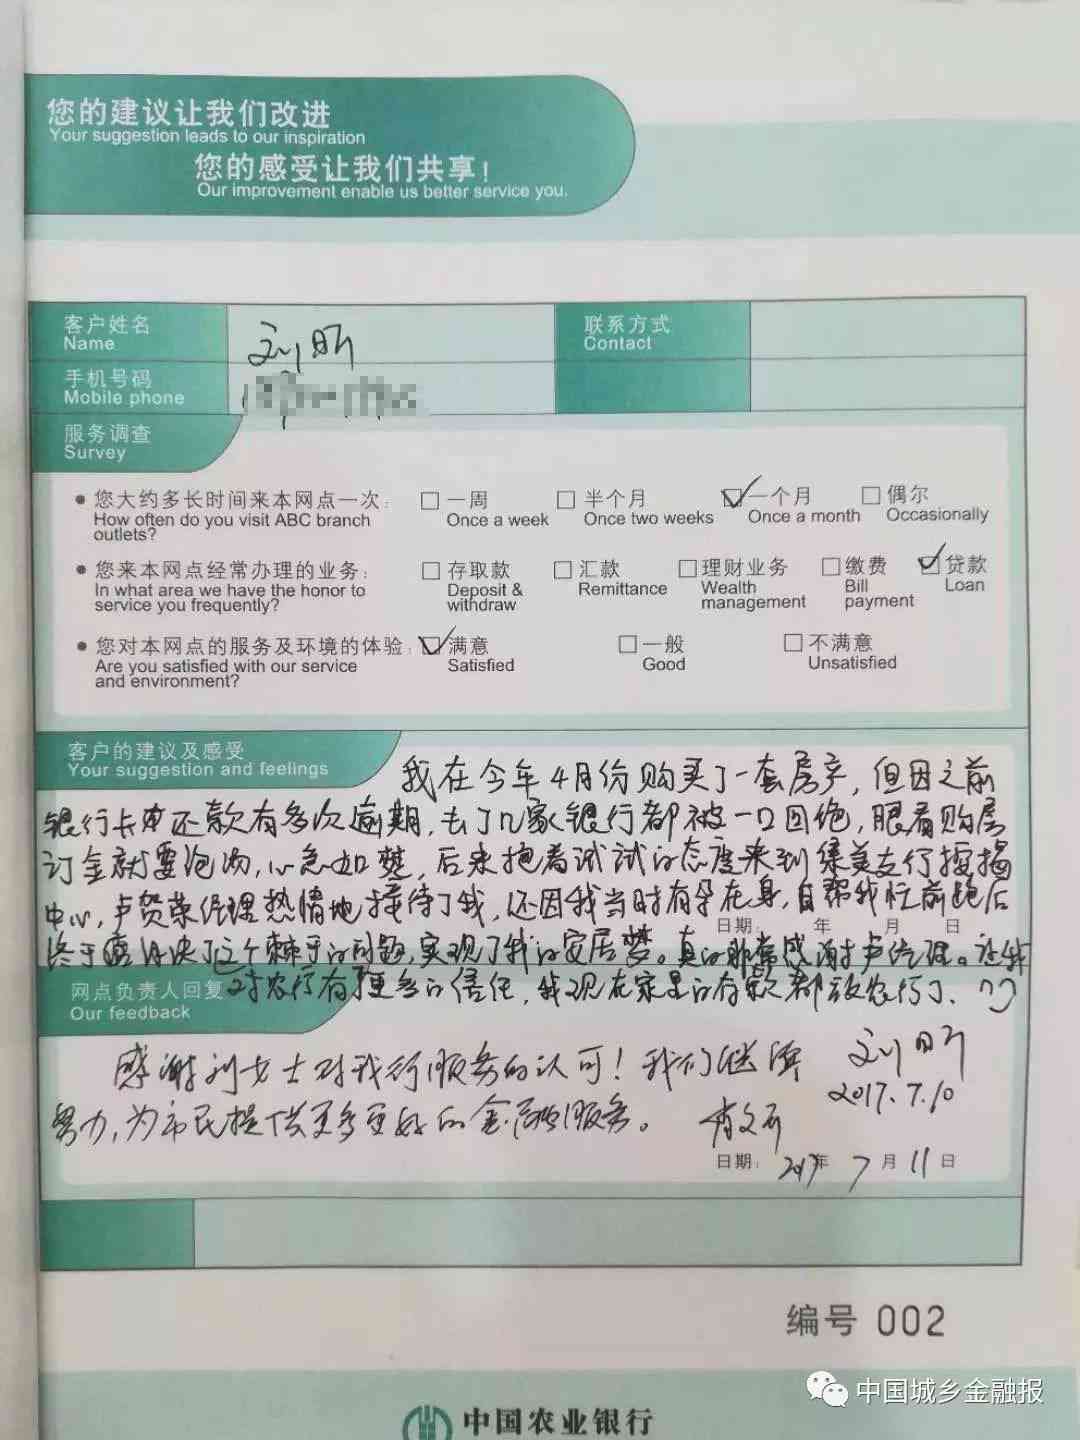 您的建议让我们改进
Your suggestion leads to our inspiration
您的感受让我们共享!
Our improvement enable us better service you.
客户姓名
Name
刘昕
联系方式
Contact
手机号码
Mobile phone
服务调查
Survey
您大约多长时间来本网点一次:
How often do you visit ABC branch
outlets?
一周
Once a week
半个月
Once two weeks
一个月
Once a month
偶尔
Occasionally
您来本网点经常办理的业务:
In what area we have the honor to
service you frequently?
存取款
Deposit &
withdraw
汇款
Remittance
理财业务
Wealth
management
缴费
Bill
payment
贷款
Loan
您对本网点的服务及环境的体验:
Are you satisfied with our service
and environment?
满意
Satisfied
一般
Good
不满意
Unsatisfied
客户的建议及感受
Your suggestion and feelings
我在今年4月份购买了一套房产,但因之前
银行卡还款有多次逾期,去了几家银行都被一口回绝,眼看购房
订金就要泡汤,心急如焚,后来抱着试试的态度来到集美支行按揭
中心,卢贺荣经理热情地接待了我,还因我当时有孕在身,帮我忙前跑后
日期: 年 月 日
终于解决了这个棘手的问题,实现了我的安居梦。真的非常感谢卢经理。让我
对农行有更多的信任,我现在家里的存款都放农行了、
网点负责人回复
Our feedback
刘昕
2017.7.10
感谢刘女士对我行服务的认可!我们继续
努力,为市民提供更多更好的金融服务。
日期: 2017年 7月 11日
编号 002
中国城乡金融报
中国农业银行